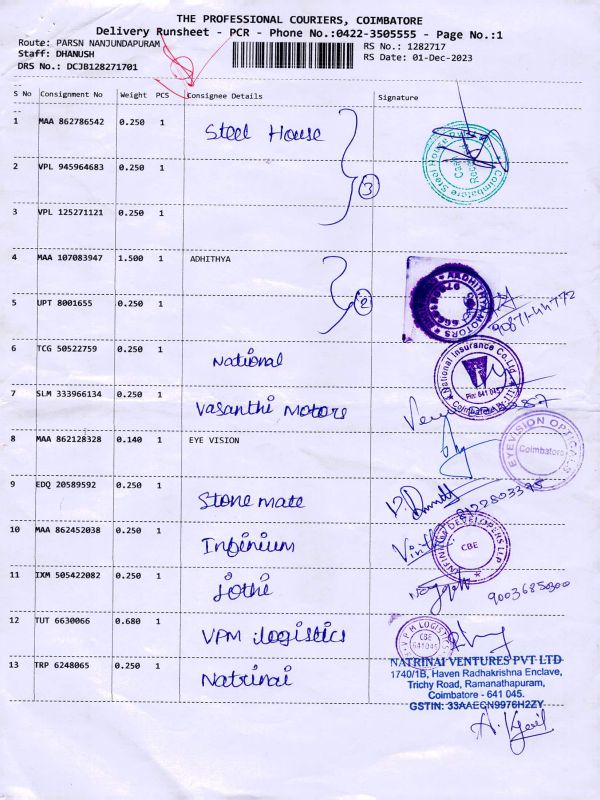 THE PROFESSIONAL COURIERS, COIMBATORE
Delivery Runsheet - PCR - Phone No.:0422-3505555 - Page No.:1
Route: PARSN NANJUNDAPURAM
RS No.: 1282717
Staff: DHANUSH
RS Date: 01-Dec-2023
DRS No.: DCJB128271701
S No Consignment No Weight PCS Consignee Details Signature
1 MAA 862786542 0.250 1 Steel House
2 VPL 945964683 0.250 1
3
3 VPL 125271121 0.250 1
4 MAA 107083947 1.500 1 ADHITHYA
5 UPT 8001655 0.250 1 2
6 TCG 50522759 0.250 1 National
National Insurance Co. Ltd
Pin: 641 045
Coimbatore
7 SLM 333966134 0.250 1 Vasanthi Motors
8 MAA 862128328 0.140 1 EYE VISION
EYEVISION OPTICALS
Coimbatore
9 EDQ 20589592 0.250 1 Stone mate
10 MAA 862452038 0.250 1 Infinium
CBE
11 IXM 505422082 0.250 1 Jothi
9003685300
12 TUT 6630066 0.680 1 VPM logistics
VPM LOGISTICS
CBE
641045
13 TRP 6248065 0.250 1 Natrinai
NATRINAI VENTURES PVT LTD
1740/1B, Haven Radhakrishna Enclave,
Trichy Road, Ramanathapuram,
Coimbatore - 641 045.
GSTIN: 33AAECN9976H2ZY